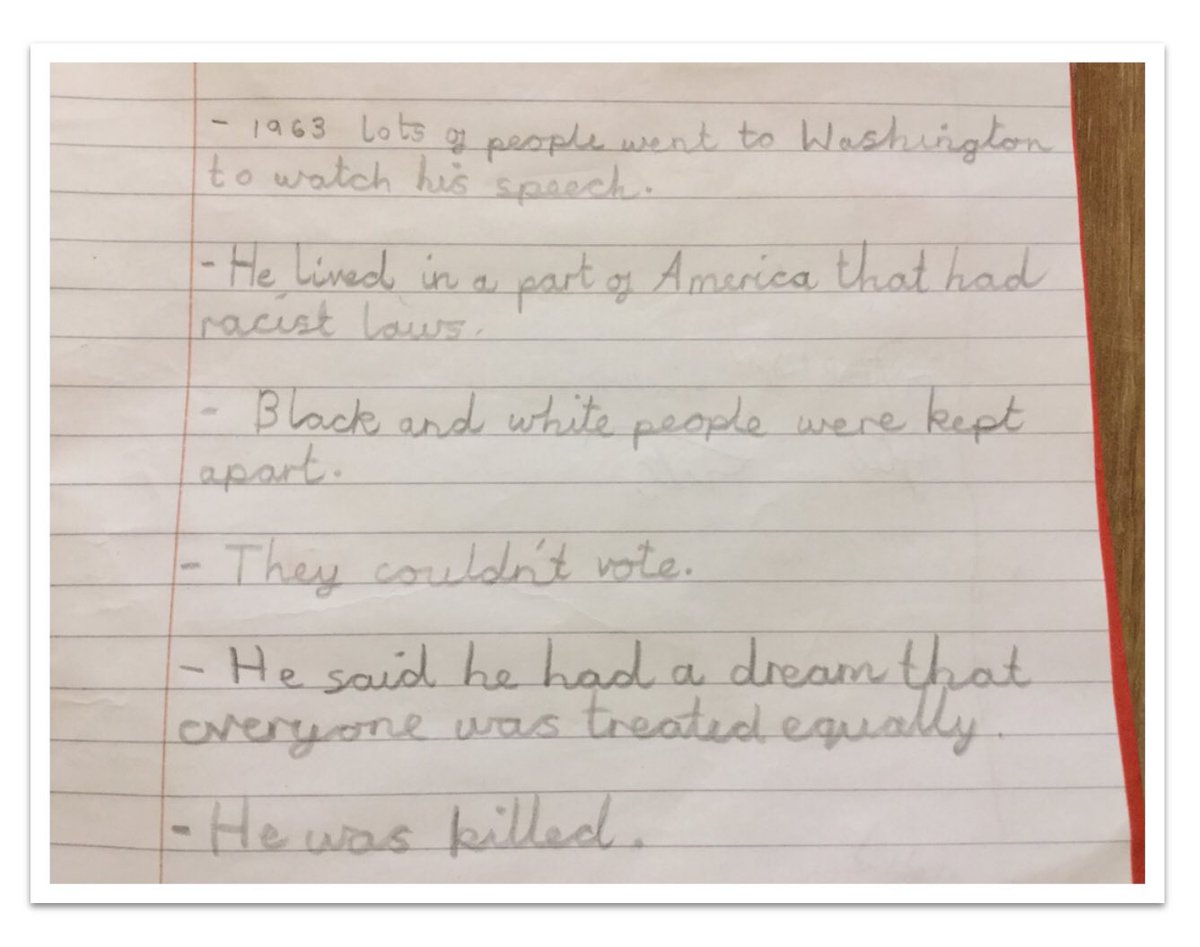 - 1963 lots of people went to Washington
to watch his speech.
- He lived in a part of America that had
racist laws.
- Black and white people were kept
apart.
- They couldn't vote.
- He said he had a dream that
everyone was treated equally.
- He was killed.